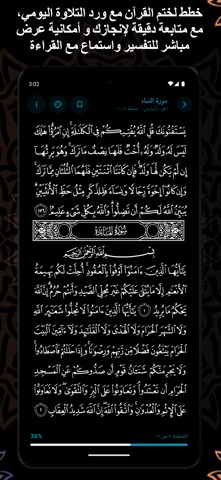 خطط لختم القرآن مع ورد التلاوة اليومي،
مع متابعة دقيقة لإنجازك و أمكانية عرض
مباشر للتفسير واستماع مع القراءة
3:02
سورة النساء
الجزء السادس - صفحة ١٠٦
يَسْتَفْتُونَكَ قُلِ ٱللَّهُ يُفْتِيكُمْ فِى ٱلْكَلَٰلَةِ إِنِ ٱمْرُؤٌا۟ هَلَكَ
لَيْسَ لَهُۥ وَلَدٌ وَلَهُۥٓ أُخْتٌ فَلَهَا نِصْفُ مَا تَرَكَ وَهُوَ يَرِثُهَآ
إِن لَّمْ يَكُن لَّهَا وَلَدٌ فَإِن كَانَتَا ٱثْنَتَيْنِ فَلَهُمَا ٱلثُّلُثَانِ مِمَّا تَرَكَ
وَإِن كَانُوٓا۟ إِخْوَةً رِّجَالًا وَنِسَآءً فَلِلذَّكَرِ مِثْلُ حَظِّ ٱلْأُنثَيَيْنِ
يُبَيِّنُ ٱللَّهُ لَكُمْ أَن تَضِلُّوا۟ وَٱللَّهُ بِكُلِّ شَىْءٍ عَلِيمٌۢ ١٧٦
سُورَةُ المَائِدَةِ
بِسْمِ ٱللَّهِ ٱلرَّحْمَٰنِ ٱلرَّحِيمِ
يَٰٓأَيُّهَا ٱلَّذِينَ ءَامَنُوٓا۟ أَوْفُوا۟ بِٱلْعُقُودِ أُحِلَّتْ لَكُم بَهِيمَةُ
ٱلْأَنْعَٰمِ إِلَّا مَا يُتْلَىٰ عَلَيْكُمْ غَيْرَ مُحِلِّى ٱلصَّيْدِ وَأَنتُمْ حُرُمٌ إِنَّ ٱللَّهَ
يَحْكُمُ مَا يُرِيدُ ١ يَٰٓأَيُّهَا ٱلَّذِينَ ءَامَنُوا۟ لَا تُحِلُّوا۟ شَعَٰٓئِرَ ٱللَّهِ
وَلَا ٱلشَّهْرَ ٱلْحَرَامَ وَلَا ٱلْهَدْىَ وَلَا ٱلْقَلَٰٓئِدَ وَلَآ ءَآمِّينَ ٱلْبَيْتَ
ٱلْحَرَامَ يَبْتَغُونَ فَضْلًا مِّن رَّبِّهِمْ وَرِضْوَٰنًا وَإِذَا حَلَلْتُمْ فَٱصْطَادُوا۟
وَلَا يَجْرِمَنَّكُمْ شَنَـَٔانُ قَوْمٍ أَن صَدُّوكُمْ عَنِ ٱلْمَسْجِدِ
ٱلْحَرَامِ أَن تَعْتَدُوا۟ وَتَعَاوَنُوا۟ عَلَى ٱلْبِرِّ وَٱلتَّقْوَىٰ وَلَا تَعَاوَنُوا۟
عَلَى ٱلْإِثْمِ وَٱلْعُدْوَٰنِ وَٱتَّقُوا۟ ٱللَّهَ إِنَّ ٱللَّهَ شَدِيدُ ٱلْعِقَابِ ٢
35%